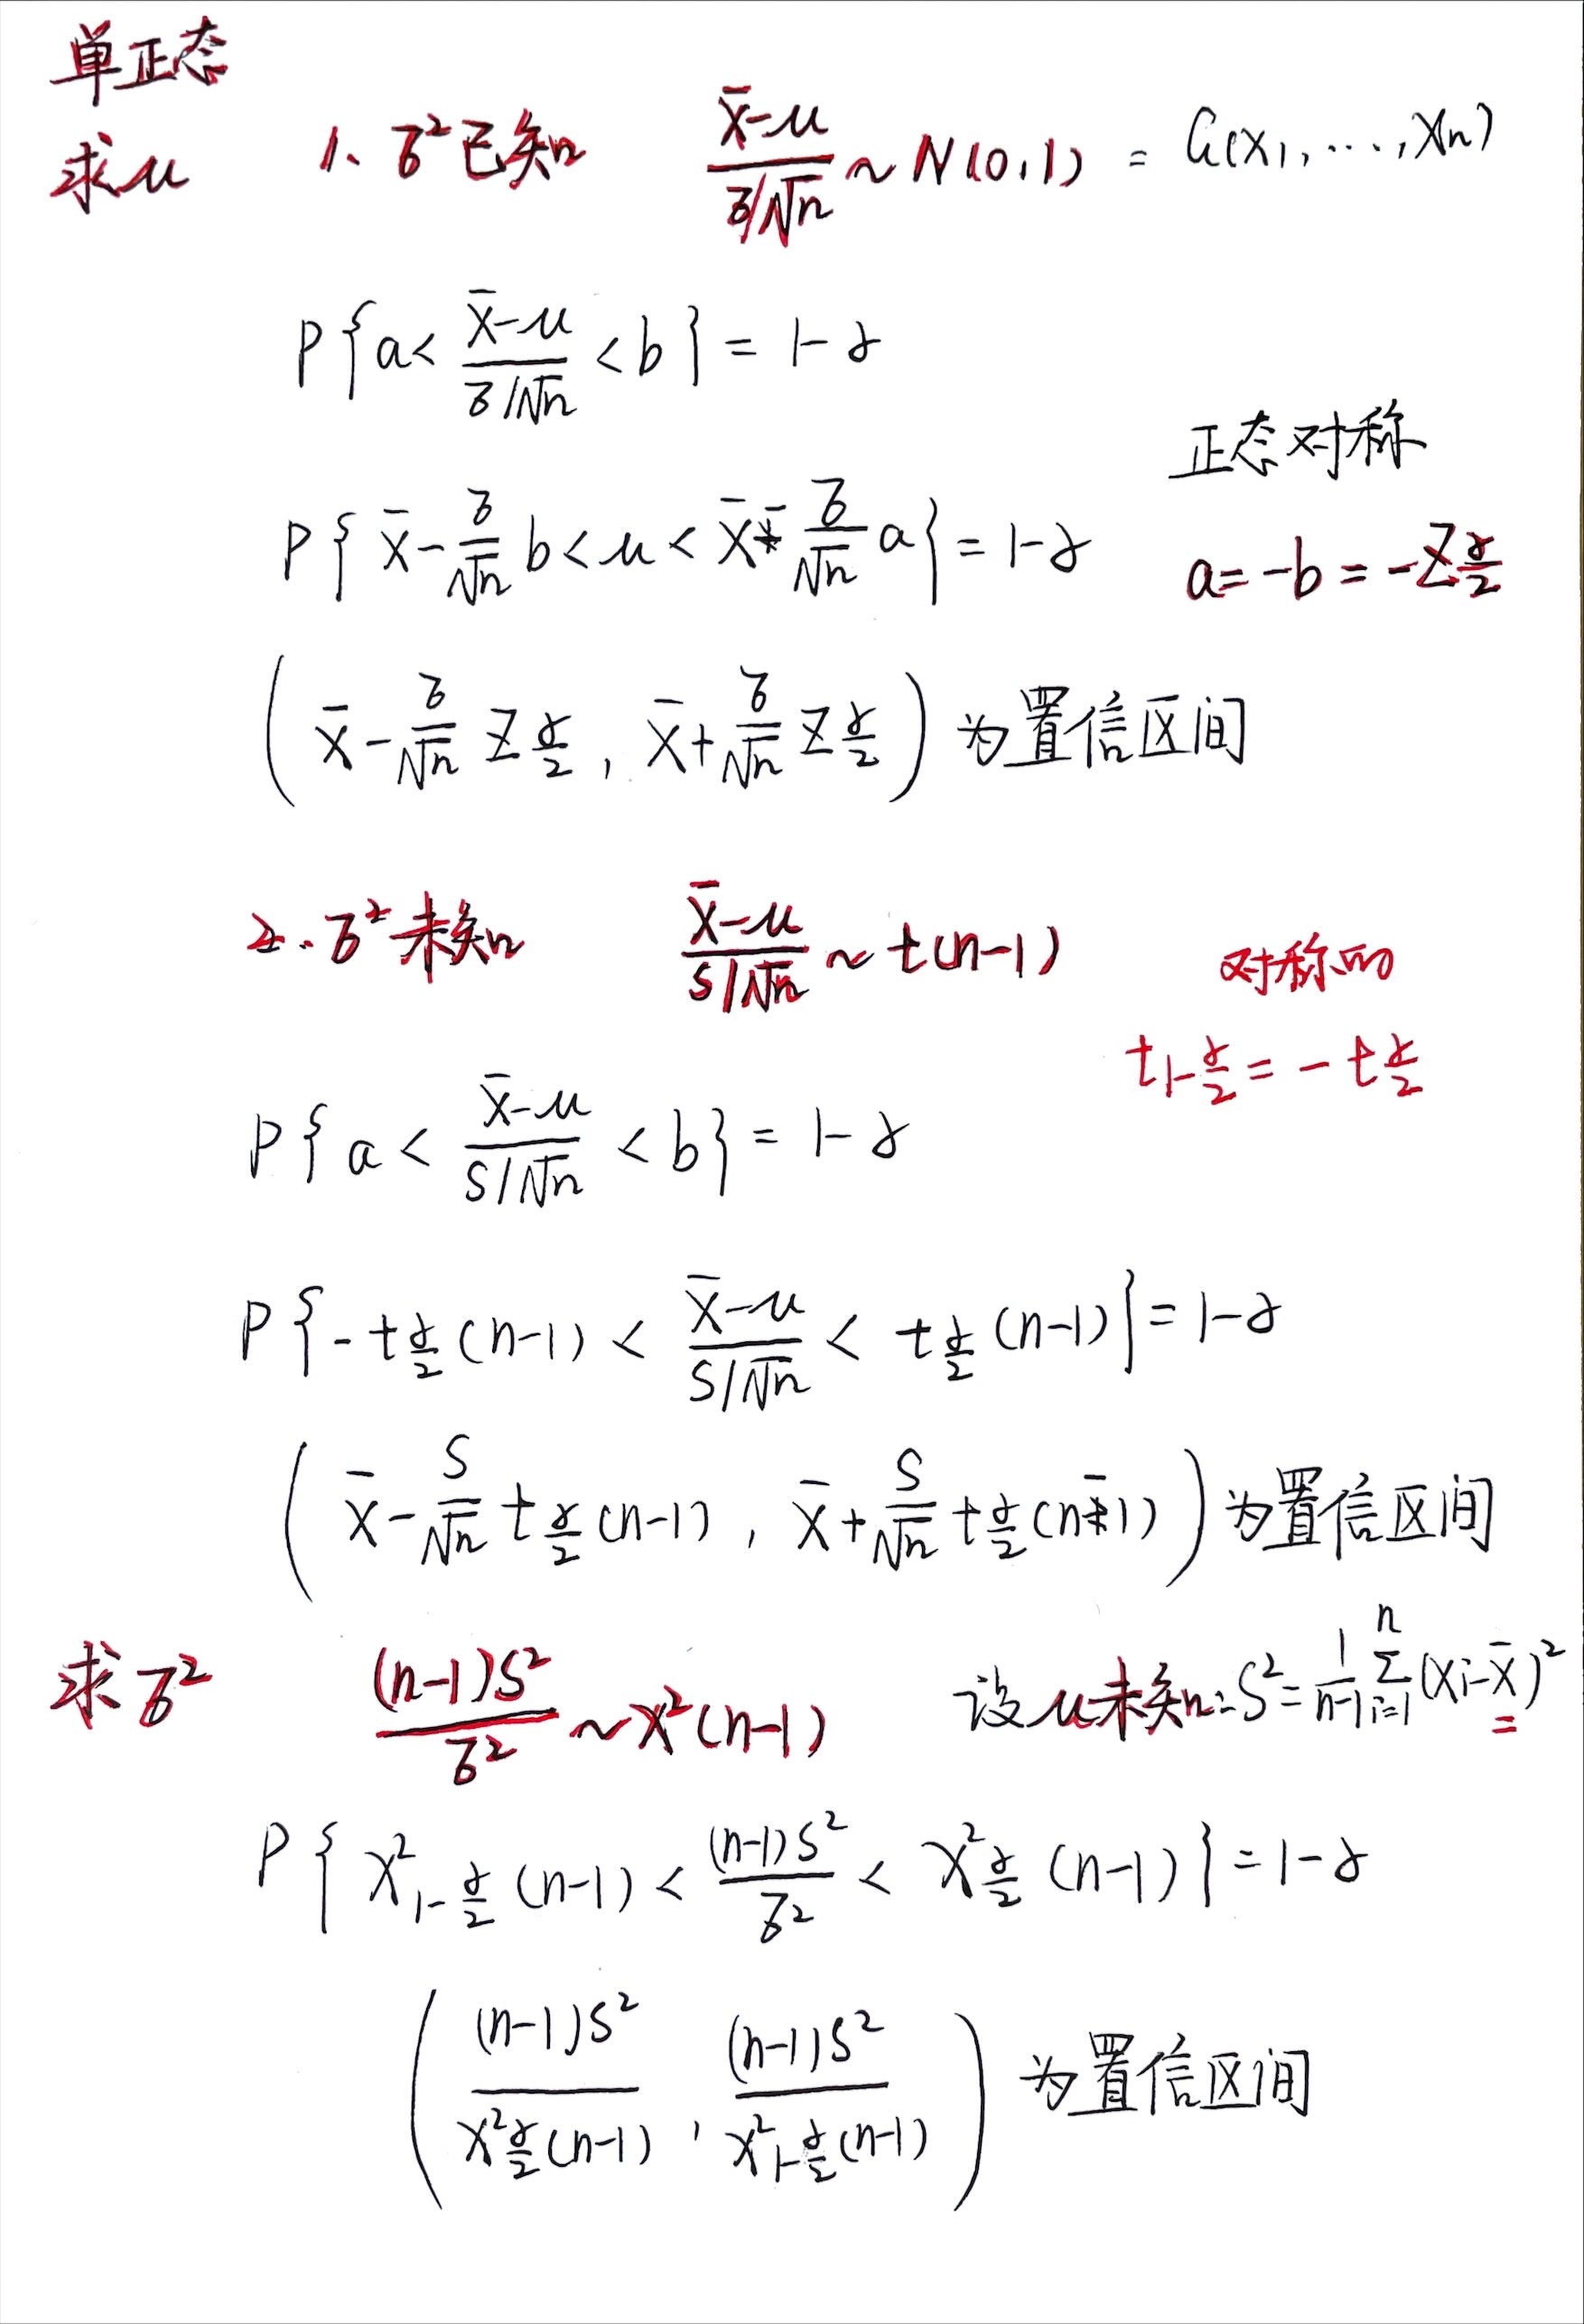 单正态
求μ 1、σ²已知 (X̄-μ)/(σ/√n) ~ N(0,1) = G(X1,…,Xn)
P{a< (X̄-μ)/(σ/√n) <b} = 1-α
正态对称
P{X̄-(σ/√n)b<μ<X̄-(σ/√n)a}=1-α a=-b=-Zα/2
(X̄-(σ/√n)Zα/2, X̄+(σ/√n)Zα/2) 为置信区间
2、σ²未知 (X̄-μ)/(S/√n) ~ t(n-1) 对称的
t1-α/2=-tα/2
P{a< (X̄-μ)/(S/√n) <b} = 1-α
P{-tα/2(n-1) < (X̄-μ)/(S/√n) < tα/2(n-1)}=1-α
(X̄-(S/√n)tα/2(n-1), X̄+(S/√n)tα/2(n-1)) 为置信区间
求σ² (n-1)S²/σ² ~ χ²(n-1) 设μ未知:S²=1/(n-1) Σ_{i=1}^{n}(Xi-X̄)²
P{χ²1-α/2(n-1) < (n-1)S²/σ² < χ²α/2(n-1)}=1-α
((n-1)S²/χ²α/2(n-1), (n-1)S²/χ²1-α/2(n-1)) 为置信区间